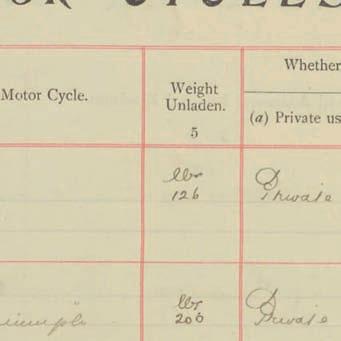 Whether
Motor Cycle.
Weight
Unladen.
(a) Private us
5
lbs
126
Private
lbs
200
Private